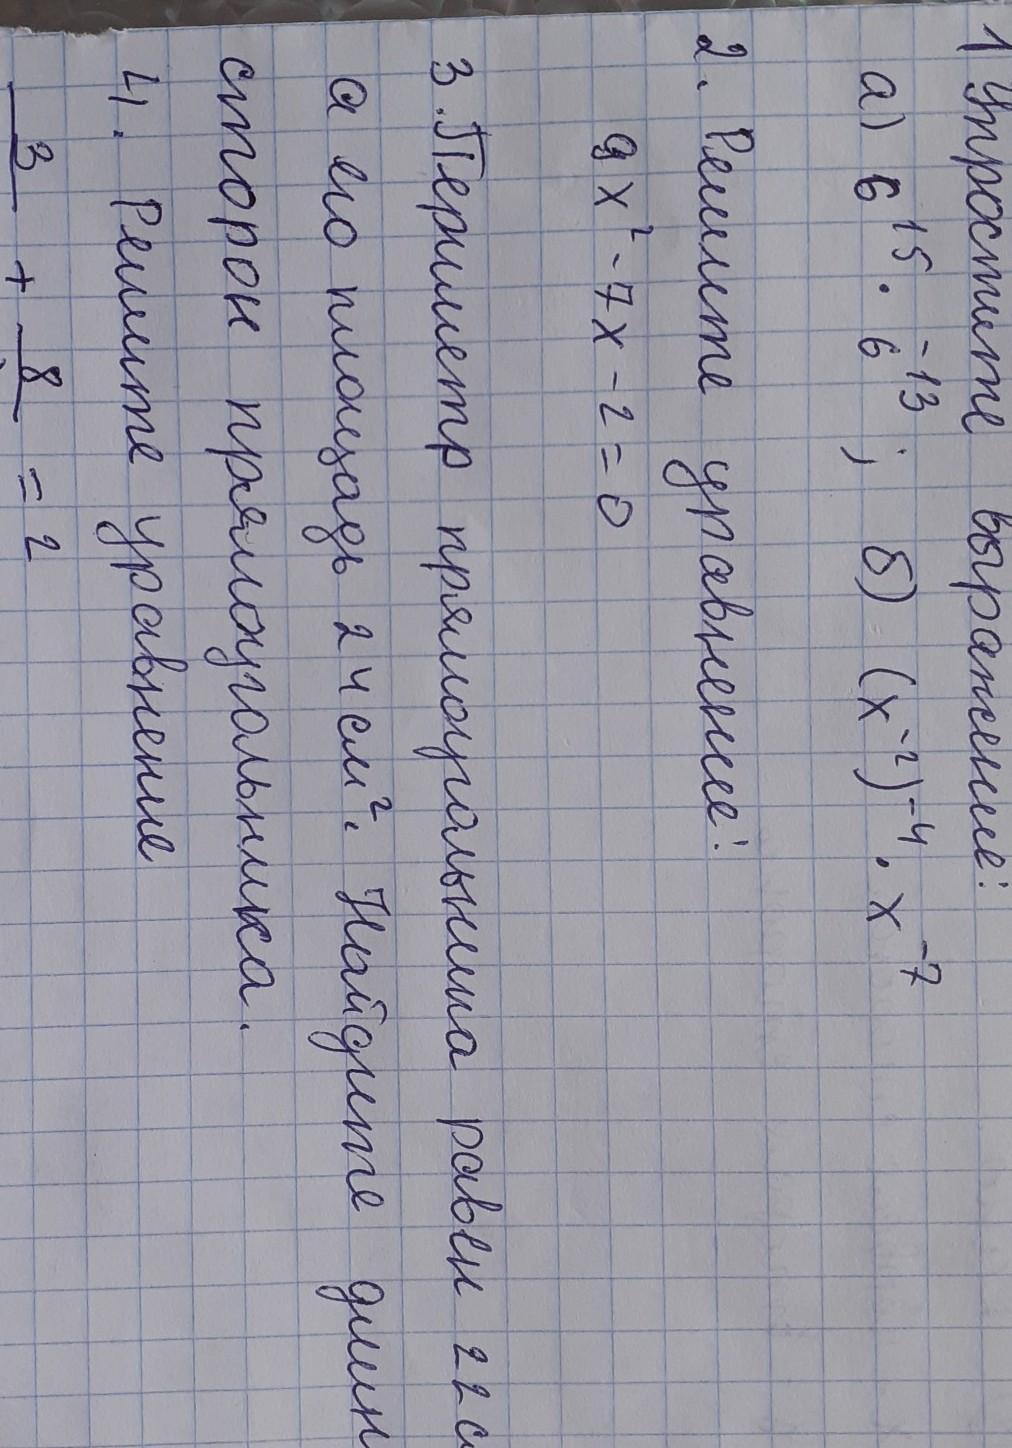 1 Упростите выражение:
а) 6¹⁵ · 6⁻¹³; б) (x⁻²)⁻⁴ · x⁻⁷
2. Решите уравнение:
9x² - 7x - 2 = 0
3. Периметр прямоугольника равен 22 с
а его площадь 24 см². Найдите длин
сторон прямоугольника.
4. Решите уравнение
3 + 8 = 2